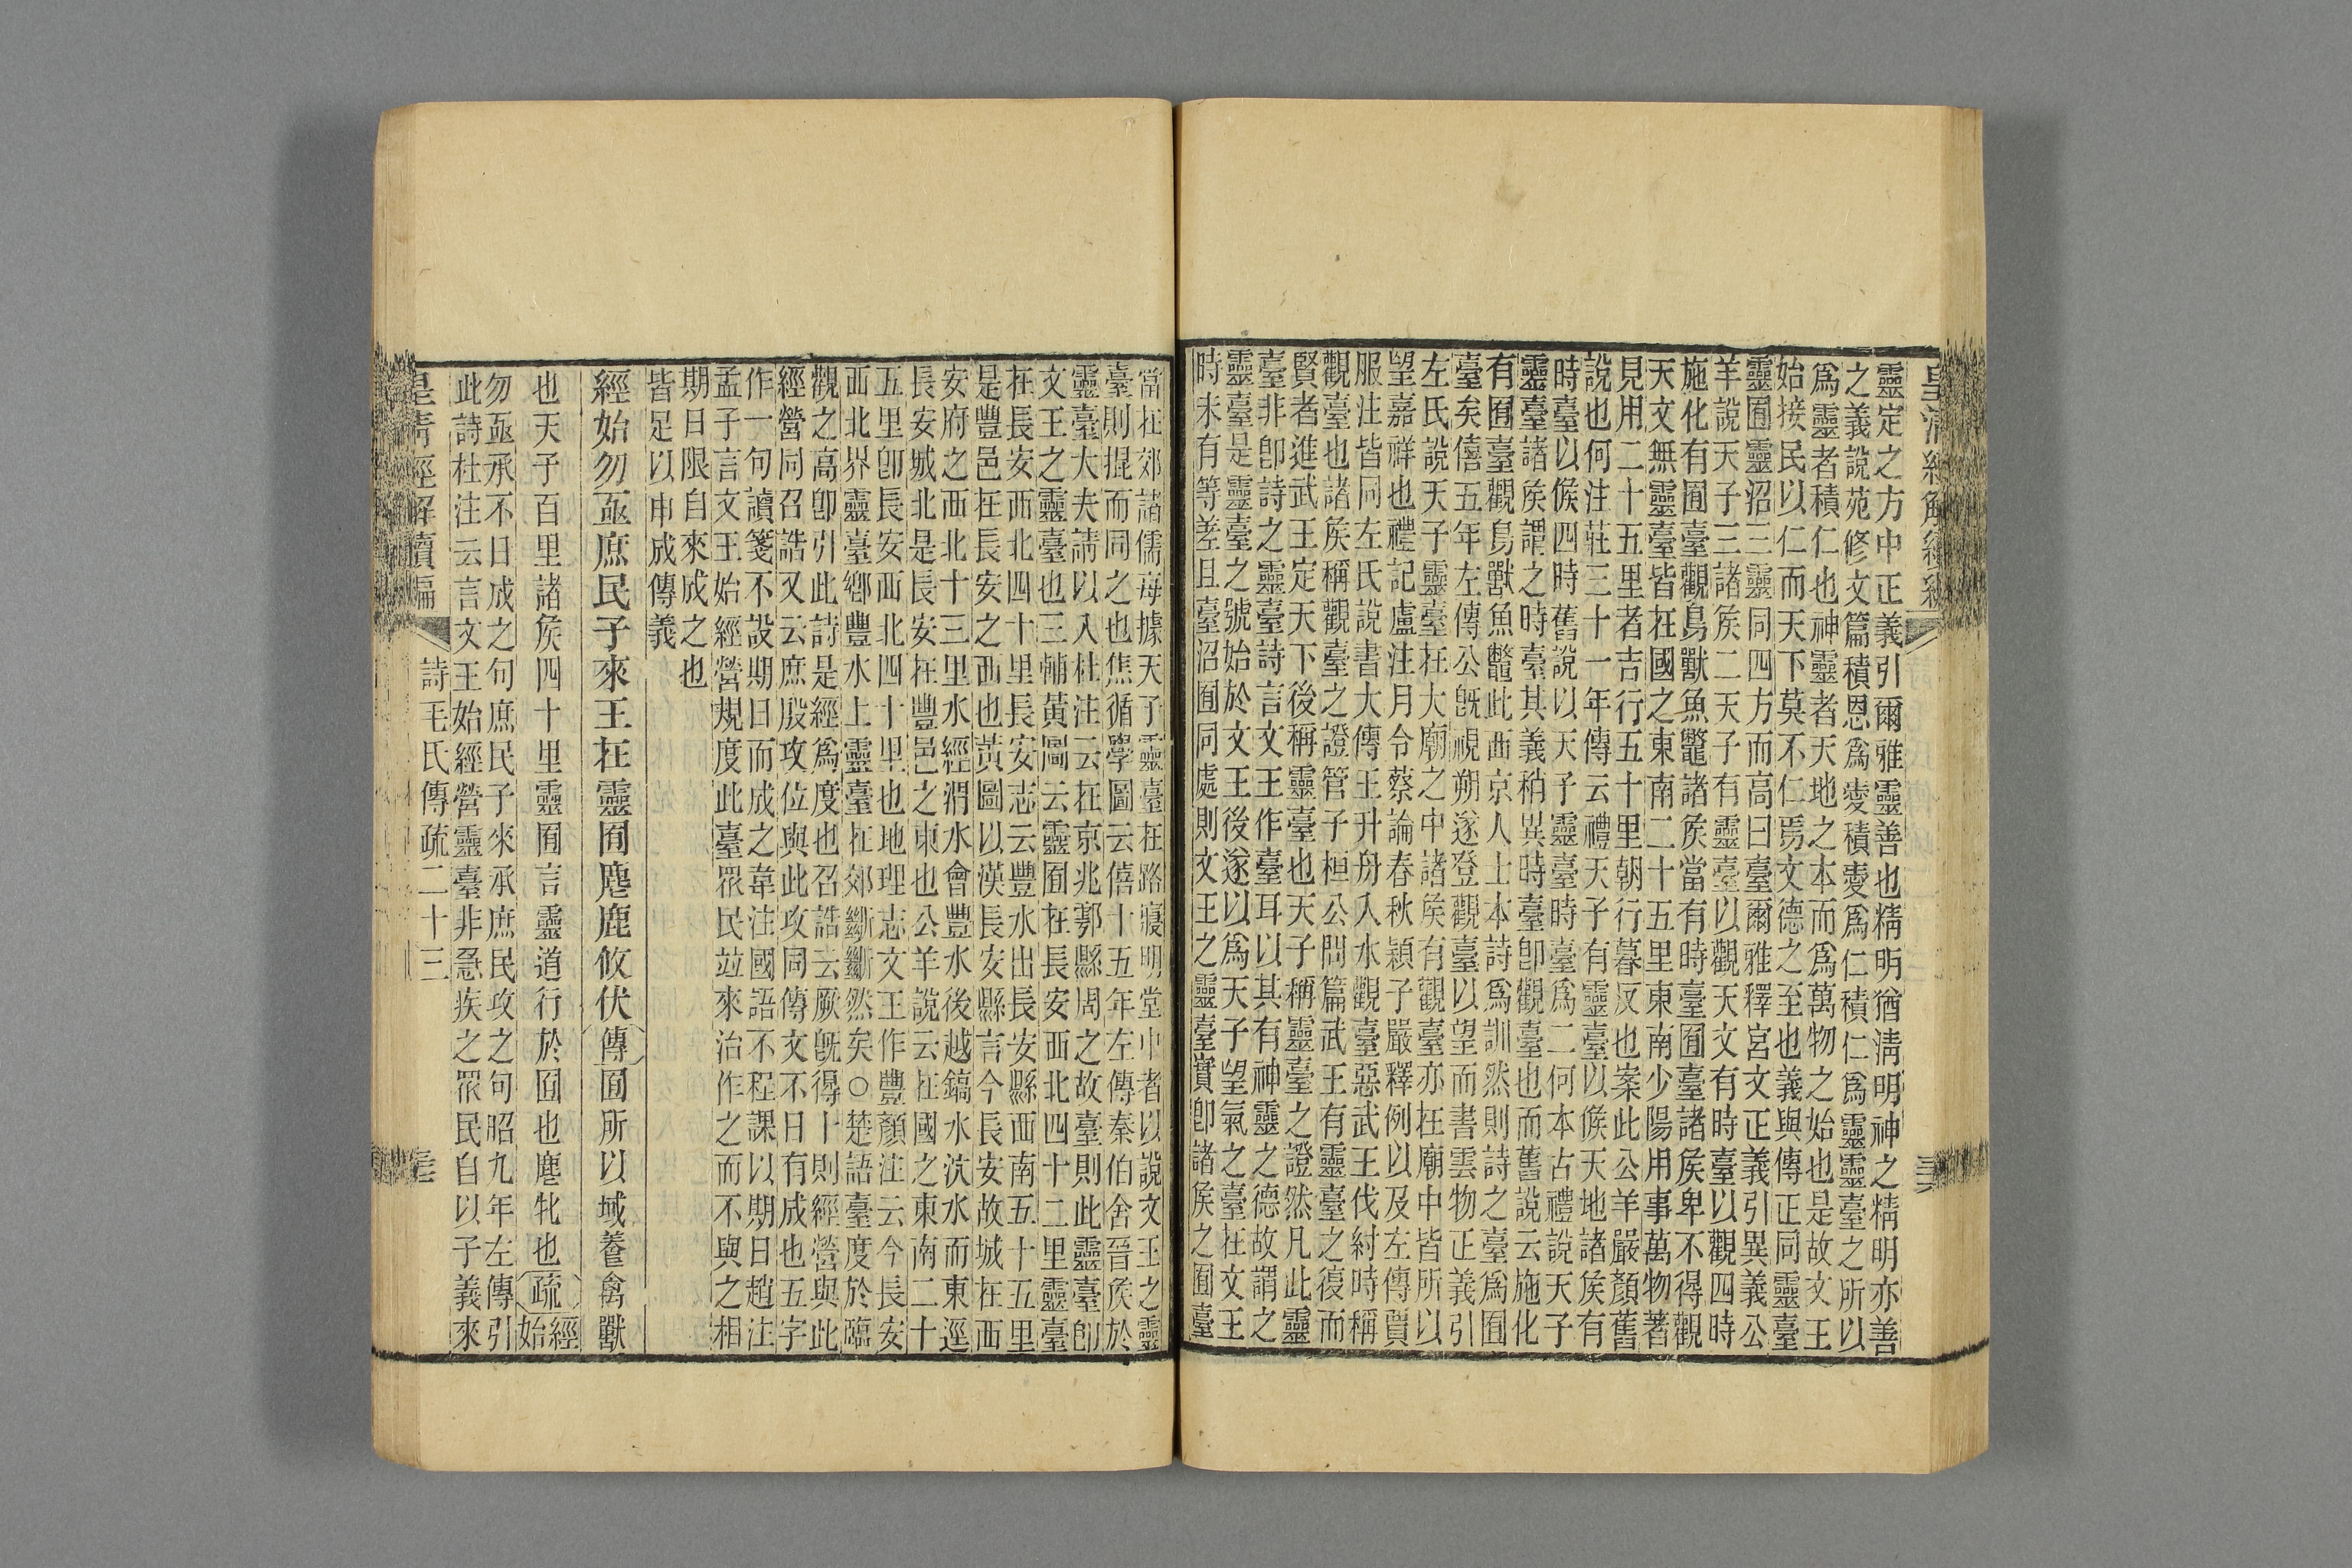 靈定之方中正義引爾雅靈善也精明猶淸明神之精明亦善
之義說苑修文篇積恩爲愛積愛爲仁積仁爲靈靈臺之所以
爲靈者積仁也神靈者天地之本而爲萬物之始也是故文王
始接民以仁而天下莫不仁焉文德之至也義與傳正同靈臺
靈囿靈沼三靈同四方而高曰臺爾雅釋宮文正義引異義公
羊說天子三諸矦二天子有靈臺以觀天文有時臺以觀四時
施化有囿臺觀鳥獸魚鼈諸矦當有時臺囿臺諸矦卑不得觀
天文無靈臺皆在國之東南二十五里東南少陽用事萬物著
見用二十五里者吉行五十里朝行暮反也案此公羊嚴顏舊
說也何注莊三十一年傳云禮天子有靈臺以候天地諸矦有
時臺以候四時舊說以天子靈臺時臺爲二何本古禮說天子
靈臺諸矦謂之時臺其義稍異時臺卽觀臺也而舊說云施化
有囿臺觀鳥獸魚鼈此西京人士本詩爲訓然則詩之臺爲囿
臺矣僖五年左傳公旣視朔遂登觀臺以望而書雲物正義引
左氏說天子靈臺在大廟之中諸矦有觀臺亦在廟中皆所以
望嘉祥也禮記盧注月令蔡論春秋穎子嚴釋例以及左傳賈
服注皆同左氏說書大傳王升舟入水觀臺惡武王伐紂時稱
觀臺也諸矦稱觀臺之證管子桓公問篇武王有靈臺之復而
賢者進武王定天下後稱靈臺也天子稱靈臺之證然凡此靈
臺非卽詩之靈臺詩言文王作臺耳以其有神靈之德故謂之
靈臺是靈臺之號始於文王後遂以爲天子望氣之臺在文王
時未有等差且臺沼囿同處則文王之靈臺實卽諸矦之囿臺
當在郊諸儒每據天子靈臺在路寢明堂中者以說文王之靈
臺則掍而同之也焦循學圖云僖十五年左傳秦伯舍晉矦於
靈臺大夫請以入杜注云在京兆鄠縣周之故臺則此靈臺卽
文王之靈臺也三輔黃圖云靈囿在長安西北四十二里靈臺
在長安西北四十里長安志云豐水出長安縣西南五十五里
是豐邑在長安之西也黃圖以漢長安縣言今長安故城在西
安府之西北十三里水經渭水會豐水後越鎬水沇水而東逕
長安城北是長安在豐邑之東也公羊說云在國之東南二十
五里卽長安西北四十里也地理志文王作豐顏注云今長安
西北界靈臺鄉豐水上靈臺在郊斷斷然矣○楚語臺度於臨
觀之高卽引此詩是經爲度也召誥云厥旣得卜則經營與此
經營同召誥又云庶殷攻位與此攻同傳文不日有成也五字
作一句讀箋不設期日而成之韋注國語不程課以期日趙注
孟子言文王始經營規度此臺眾民竝來治作之而不與之相
期日限自來成之也
皆足以申成傳義
經始勿亟庶民子來王在靈囿麀鹿攸伏傳囿所以域養禽獸
也天子百里諸矦四十里靈囿言靈道行於囿也麀牝也疏經始
勿亟承不日成之句庶民子來承庶民攻之句昭九年左傳引
此詩杜注云言文王始經營靈臺非急疾之眾民自以子義來
皇淸經解續編 詩毛氏傳疏二十三